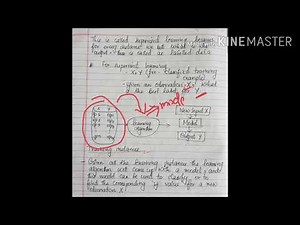 KINEMASTER
This is called supervised learning, because
for every instance we but label to the
output - this is called as labeled data
For supervised learning
X, Y (for classified training
example)
- Given an observation X, what
is the best label for Y
model
X Y
learning
Algorithm
New Input X
Model
Output Y
Training instance.
Given all the learning instance the learning
algorithm will come up with a model, and
this model can be used to classify or to
find the corresponding y value for a new
observation X